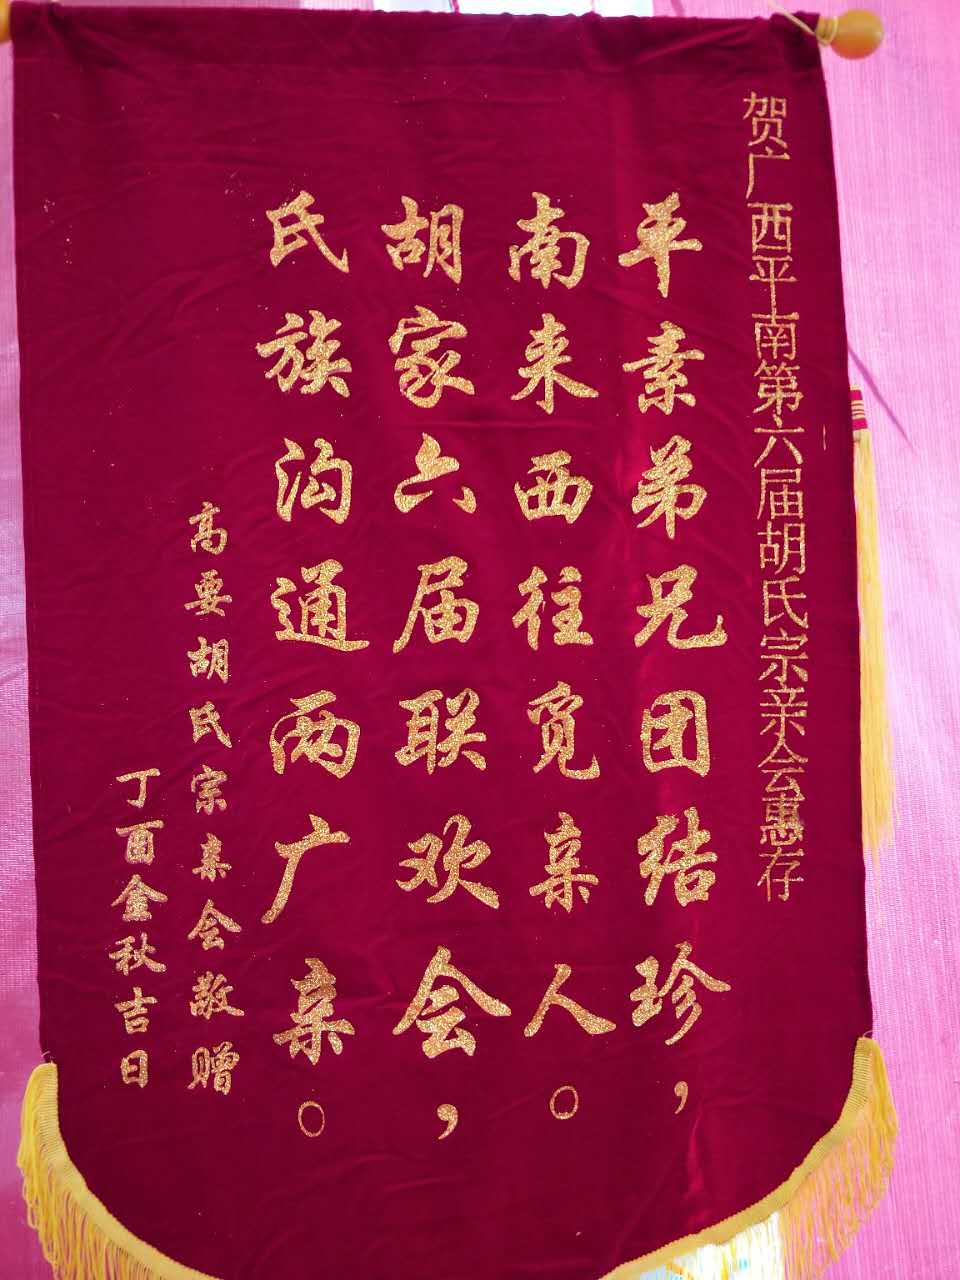 贺广西平南第六届胡氏宗亲会惠存
平素弟兄团结珍，
南来西往觅亲人。
胡家六届联欢会，
氏族沟通两广亲。
高要胡氏宗亲会敬赠
丁酉金秋吉日